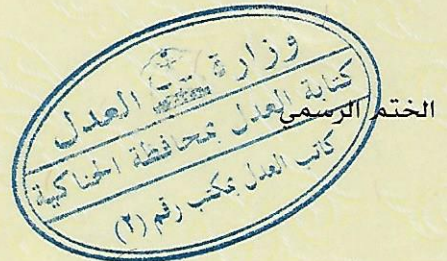 وزارة العدل
كتابة العدل بمحافظة الحناكية
كاتب العدل بمكتب رقم (٢)
الختم الرسمي